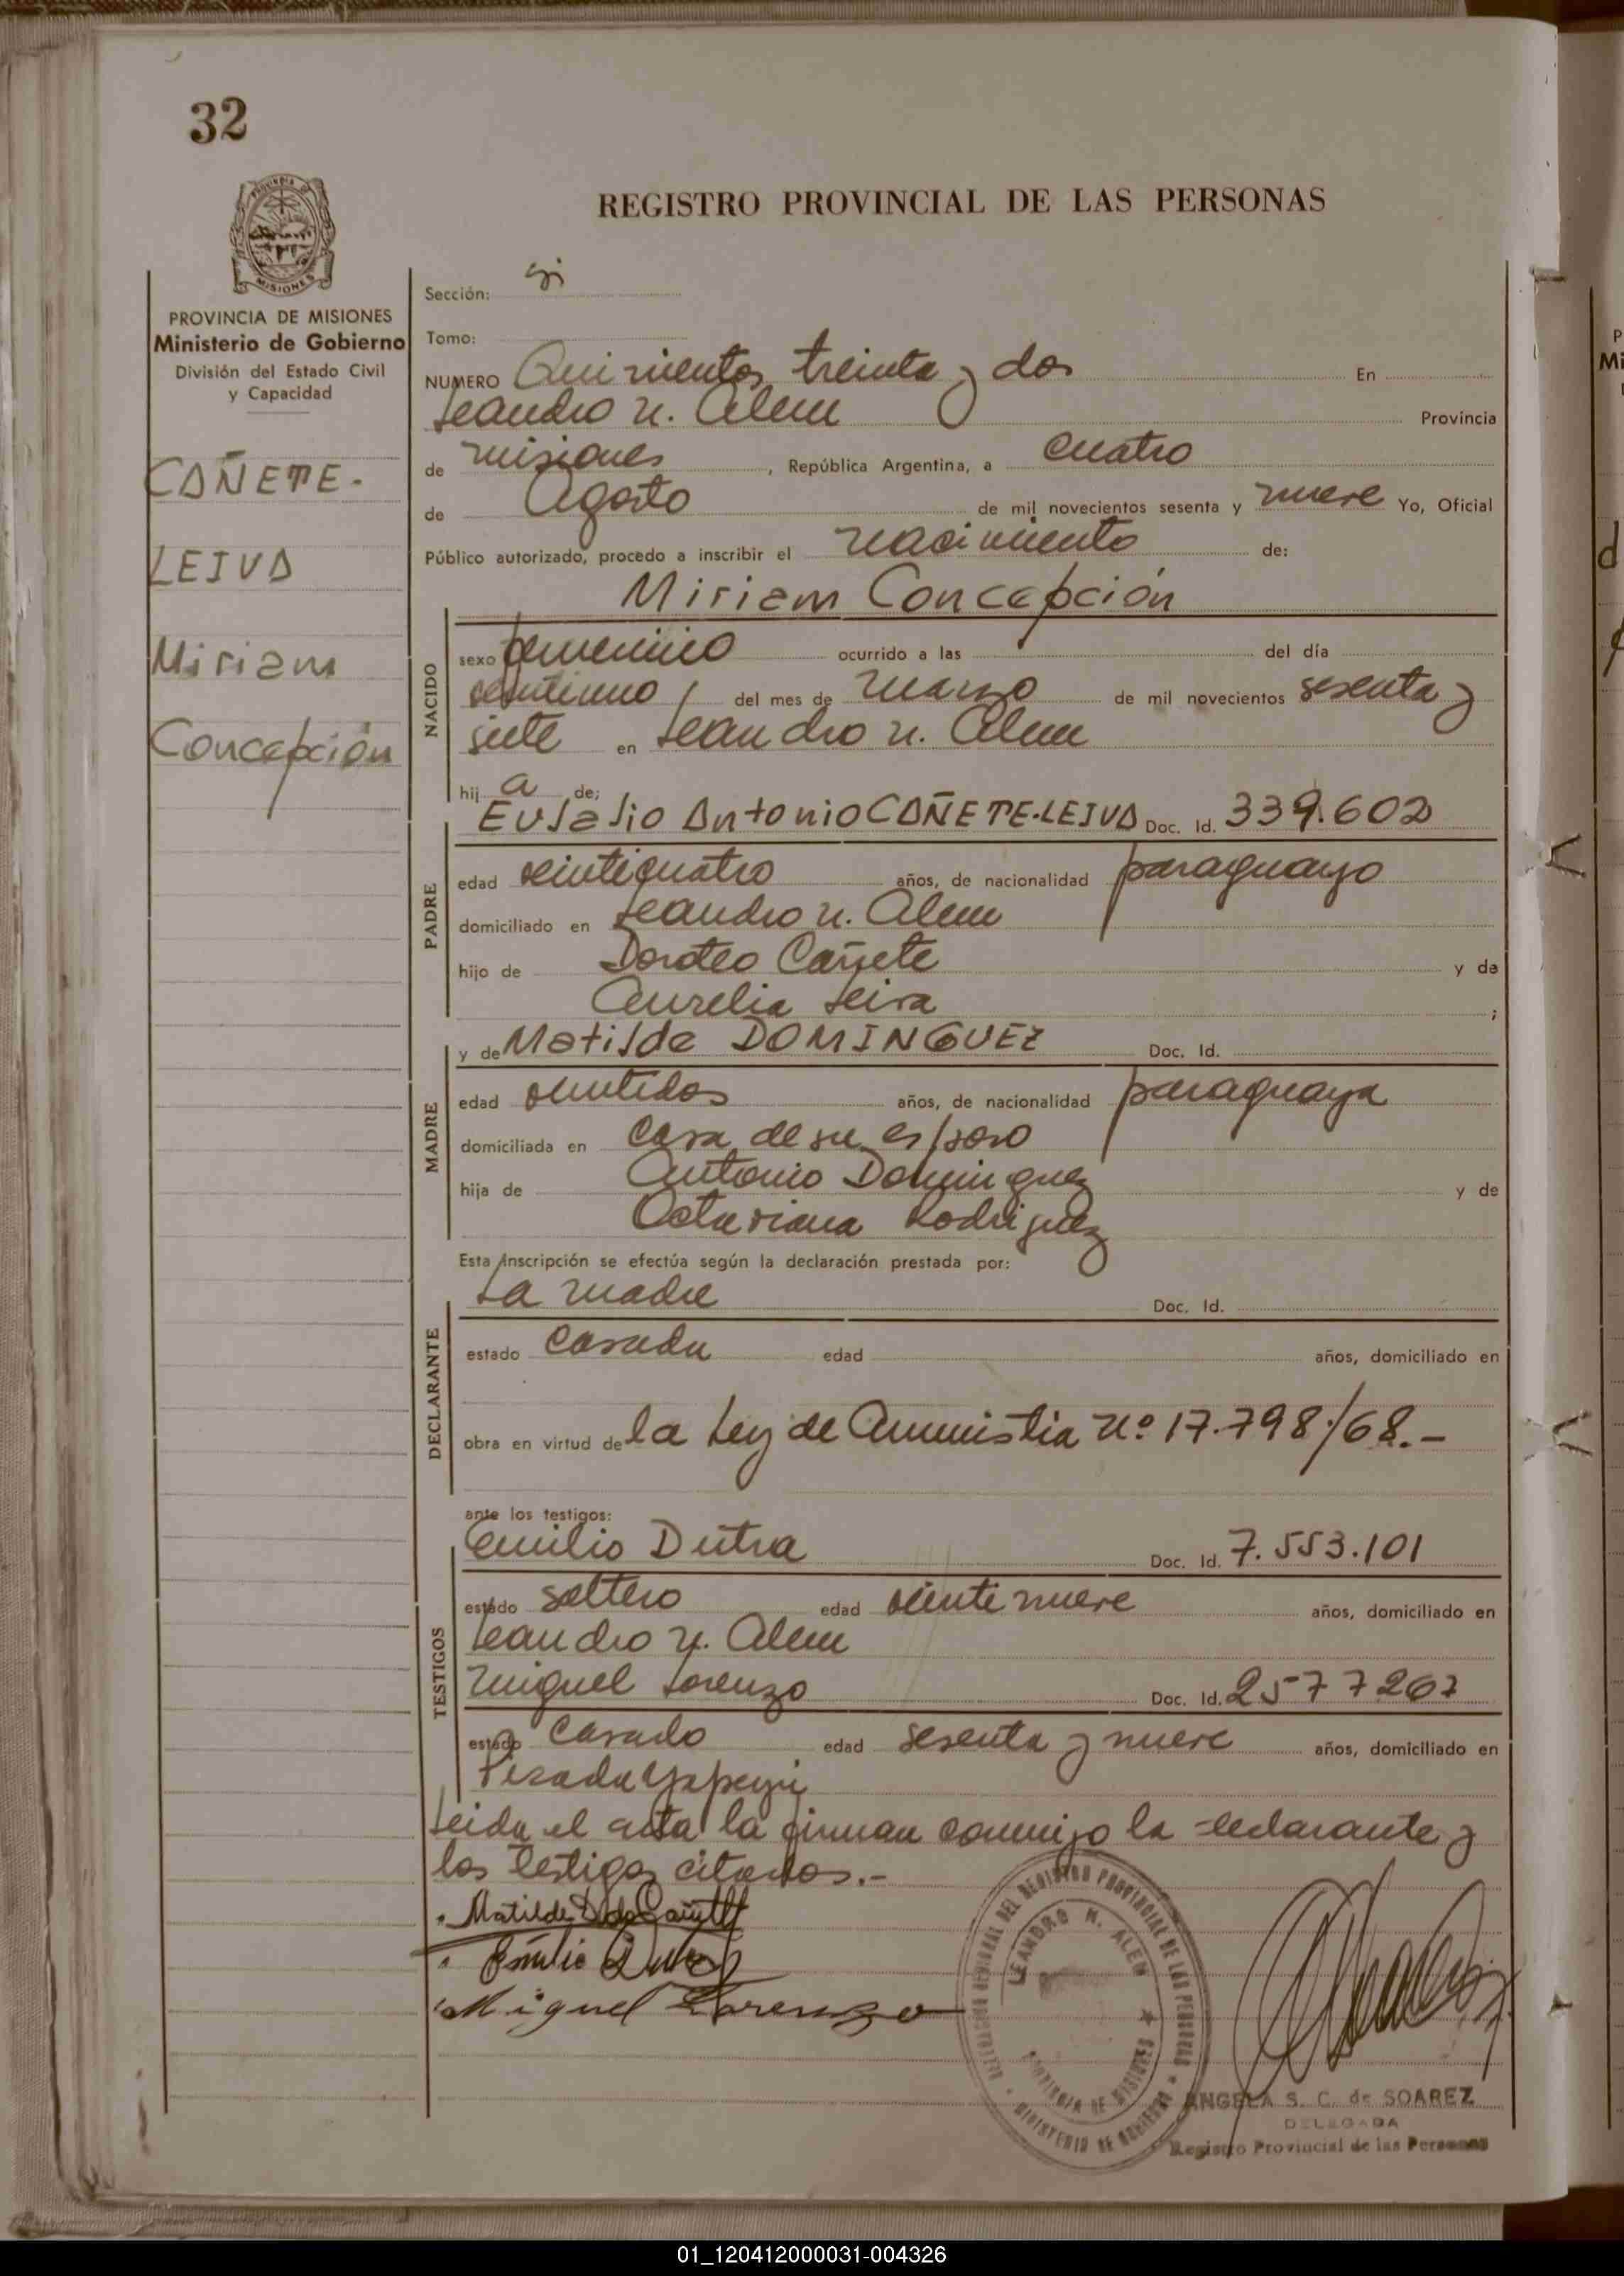 32
REGISTRO PROVINCIAL DE LAS PERSONAS
PROVINCIA
MISIONES
PROVINCIA DE MISIONES
Ministerio de Gobierno
División del Estado Civil
y Capacidad
CAÑETE.
LEIVA
Miriam
Concepción
Sección:
Tomo:
NUMERO Quinientos treinta y dos En
Leandro N. Alem Provincia
de Misiones, República Argentina, a cuatro
de Agosto de mil novecientos sesenta y nueve Yo, Oficial
Público autorizado, procedo a inscribir el nacimiento de:
Miriam Concepción
NACIDO
sexo femenino ocurrido a las del día
veintiuno del mes de Marzo de mil novecientos sesenta y
siete en Leandro N. Alem
hij a de;
PADRE
Eulalio Antonio CAÑETE-LEIVA Doc. Id. 339.602
edad veinticuatro años, de nacionalidad paraguayo
domiciliado en Leandro N. Alem
hijo de Doroteo Cañete y de
Aurelia Leiva ;
MADRE
y de Matilde DOMINGUEZ Doc. Id.
edad veintidos años, de nacionalidad paraguaya
domiciliada en casa de su esposo
hija de Antonio Dominguez y de
Octaviana Rodriguez
Esta inscripción se efectúa según la declaración prestada por:
DECLARANTE
La madre Doc. Id.
estado casada edad años, domiciliado en
obra en virtud de la Ley de Amnistia Nº 17.798/68.-
ante los testigos:
TESTIGOS
Emilio Dutra Doc. Id. 7.553.101
estado soltero edad veinte nueve años, domiciliado en
Leandro N. Alem
Miguel Lorenzo Doc. Id. 2577267
estado casado edad sesenta y nueve años, domiciliado en
Picada Yapeyú
Leida el acta la firman conmigo la declarante y
los testigos citados.-
Matilde D de Cañete
Emilio Dutra
Miguel Lorenzo
DIRECCION GENERAL DEL REGISTRO PROVINCIAL DE LAS PERSONAS
LEANDRO N. ALEM
PROVINCIA DE MISIONES
MINISTERIO DE GOBIERNO
ANGELA S. C. de SOAREZ
DELEGADA
Registro Provincial de las Personas
01_120412000031-004326